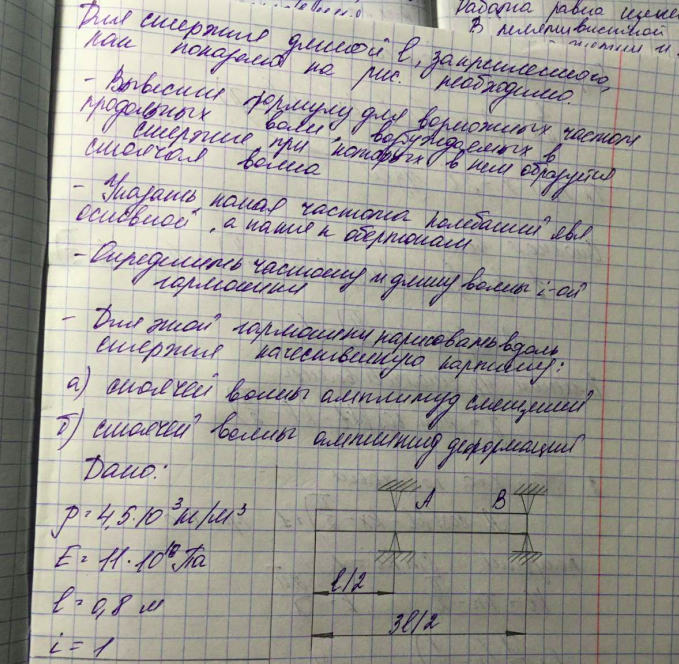 Работа равна
В
Для стержня длиной l, закрепленного,
как показано на рис. необходимо:
- Вывести формулу для возможных частот
продольных волн, возбуждаемых в
стержне при которых в нем образуется
стоячая волна
- Указать какая частота колебаний явл
основной, а какие к обертонам
- Определить частоту и длину волны i-ой
гармоники
- Для этой гармоники нарисовать вдоль
стержня качественную картину:
а) стоячей волны амплитуд смещений
б) стоячей волны амплитуд деформаций
Дано:
ρ = 4,5·10³ кг/м³
E = 11·10¹⁰ Па
l = 0,8 м
i = 1
A B
l/2
3l/2